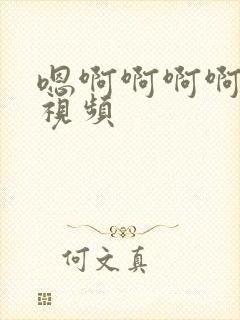 嗯啊啊啊啊
视频
何文真